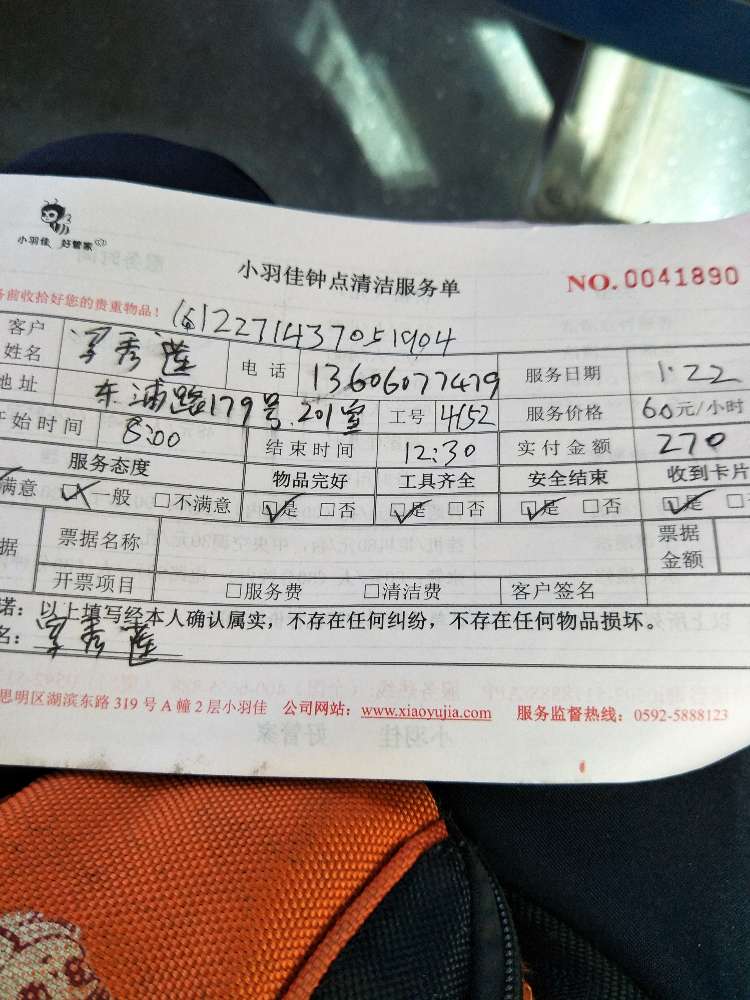 小羽佳 好管家
小羽佳钟点清洁服务单 NO.0041890
务前收拾好您的贵重物品!
161227143705 1904
客户姓名 秀莲 电话 13606077479 服务日期 1.22
地址 东浦路179号.201室 工号 4152 服务价格 60元/小时
开始时间 8:00 结束时间 12:30 实付金额 270
服务态度 物品完好 工具齐全 安全结束 收到卡片
满意 □一般 □不满意 □是 □否 □是 □否 □是 □否 □是 □
据 票据名称 票据金额
开票项目 □服务费 □清洁费 客户签名
诺:以上填写经本人确认属实,不存在任何纠纷,不存在任何物品损坏。
名: 秀莲
思明区湖滨东路319号A幢2层小羽佳 公司网站:www.xiaoyujia.com 服务监督热线:0592-5888123